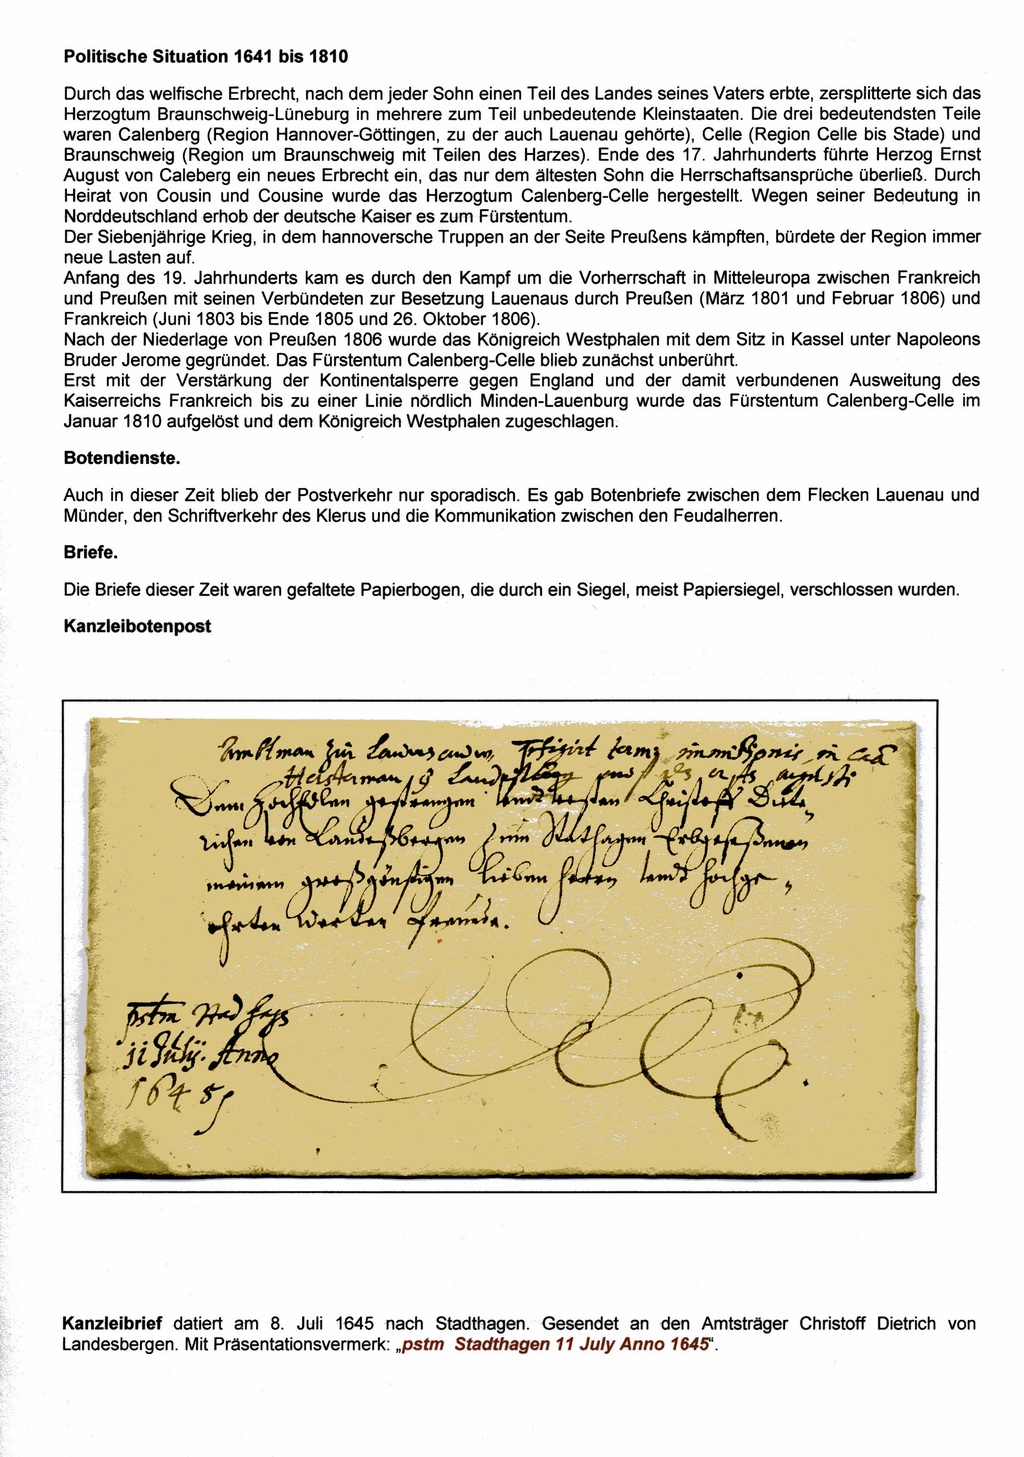 Politische Situation 1641 bis 1810
Durch das welfische Erbrecht, nach dem jeder Sohn einen Teil des Landes seines Vaters erbte, zersplitterte sich das
Herzogtum Braunschweig-Lüneburg in mehrere zum Teil unbedeutende Kleinstaaten. Die drei bedeutendsten Teile
waren Calenberg (Region Hannover-Göttingen, zu der auch Lauenau gehörte), Celle (Region Celle bis Stade) und
Braunschweig (Region um Braunschweig mit Teilen des Harzes). Ende des 17. Jahrhunderts führte Herzog Ernst
August von Caleberg ein neues Erbrecht ein, das nur dem ältesten Sohn die Herrschaftsansprüche überließ. Durch
Heirat von Cousin und Cousine wurde das Herzogtum Calenberg-Celle hergestellt. Wegen seiner Bedeutung in
Norddeutschland erhob der deutsche Kaiser es zum Fürstentum.
Der Siebenjährige Krieg, in dem hannoversche Truppen an der Seite Preußens kämpften, bürdete der Region immer
neue Lasten auf.
Anfang des 19. Jahrhunderts kam es durch den Kampf um die Vorherrschaft in Mitteleuropa zwischen Frankreich
und Preußen mit seinen Verbündeten zur Besetzung Lauenaus durch Preußen (März 1801 und Februar 1806) und
Frankreich (Juni 1803 bis Ende 1805 und 26. Oktober 1806).
Nach der Niederlage von Preußen 1806 wurde das Königreich Westphalen mit dem Sitz in Kassel unter Napoleons
Bruder Jerome gegründet. Das Fürstentum Calenberg-Celle blieb zunächst unberührt.
Erst mit der Verstärkung der Kontinentalsperre gegen England und der damit verbundenen Ausweitung des
Kaiserreichs Frankreich bis zu einer Linie nördlich Minden-Lauenburg wurde das Fürstentum Calenberg-Celle im
Januar 1810 aufgelöst und dem Königreich Westphalen zugeschlagen.
Botendienste.
Auch in dieser Zeit blieb der Postverkehr nur sporadisch. Es gab Botenbriefe zwischen dem Flecken Lauenau und
Münder, den Schriftverkehr des Klerus und die Kommunikation zwischen den Feudalherren.
Briefe.
Die Briefe dieser Zeit waren gefaltete Papierbogen, die durch ein Siegel, meist Papiersiegel, verschlossen wurden.
Kanzleibotenpost
Ambtman zu Lauenau
Dem HochEdlen gestrengen undt vesten Christoff Diete
richen von Landeßbergen zum Stathagen Erbgeseßenen
meinem großgünstigen lieben herren undt hochge
ehrten werten freunde.
pstm Stadhagen
11 July. Anno
1645
Kanzleibrief datiert am 8. Juli 1645 nach Stadthagen. Gesendet an den Amtsträger Christoff Dietrich von
Landesbergen. Mit Präsentationsvermerk: „pstm Stadthagen 11 July Anno 1645“.